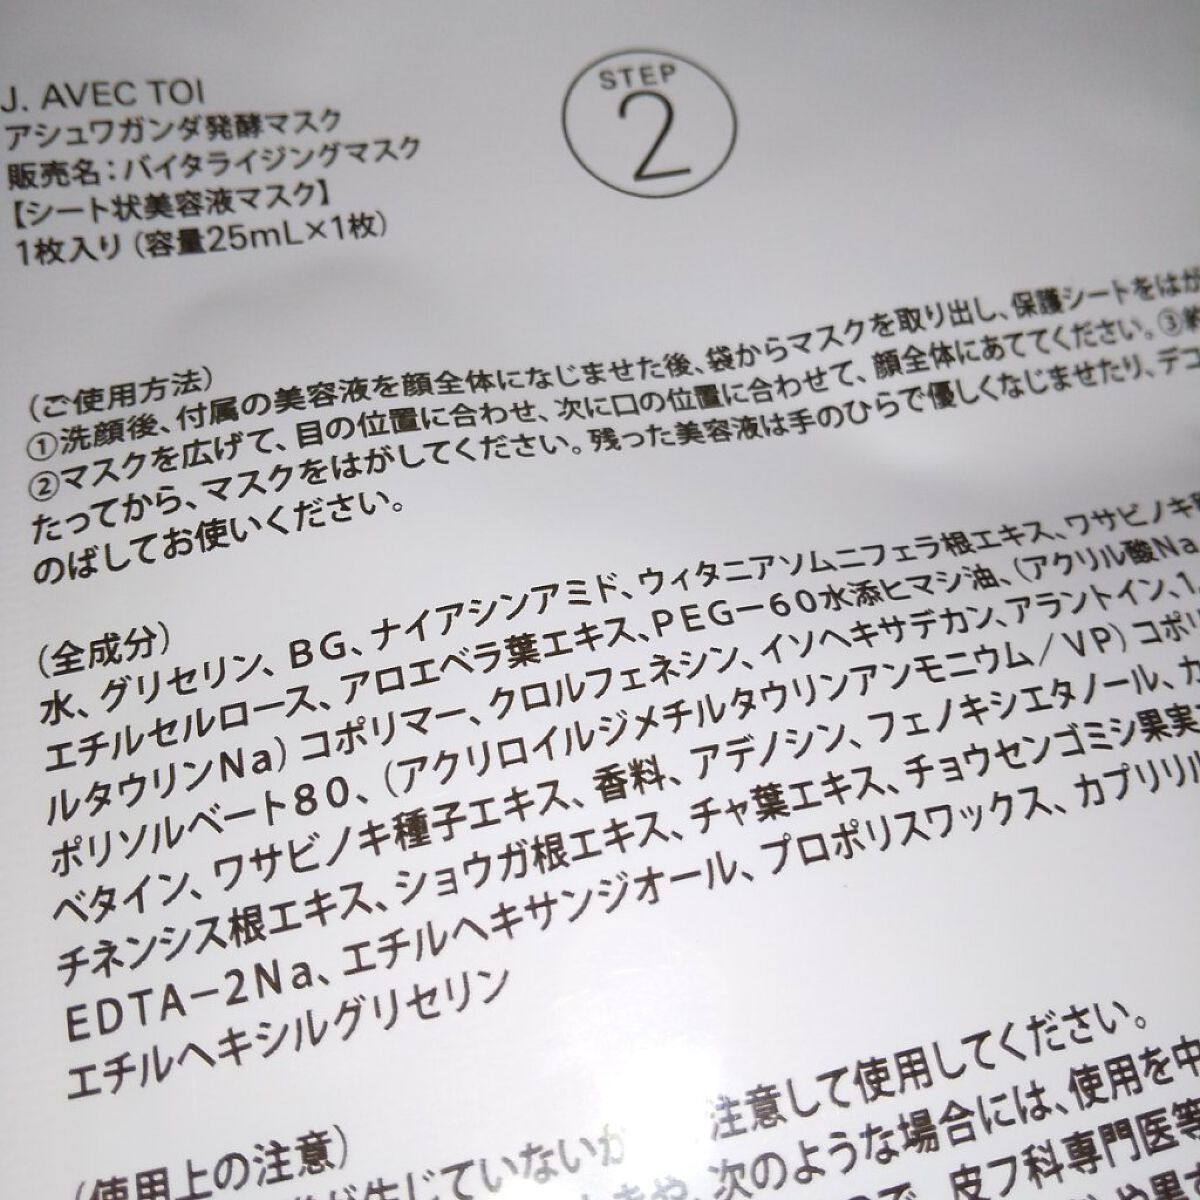 J. AVEC TOI
アシュワガンダ発酵マスク
販売名：バイタライジングマスク
【シート状美容液マスク】
1枚入り（容量25mL×1枚）
STEP
2
（ご使用方法）
①洗顔後、付属の美容液を顔全体になじませた後、袋からマスクを取り出し、保護シートをはが
②マスクを広げて、目の位置に合わせ、次に口の位置に合わせて、顔全体にあててください。③約
たってから、マスクをはがしてください。残った美容液は手のひらで優しくなじませたり、デコ
のばしてお使いください。
（全成分）
水、グリセリン、BG、ナイアシンアミド、ウィタニアソムニフェラ根エキス、ワサビノキ種
エチルセルロース、アロエベラ葉エキス、PEG－60水添ヒマシ油、（アクリル酸Na
ルタウリンNa）コポリマー、クロルフェネシン、イソヘキサデカン、アラントイン、1
ポリソルベート80、（アクリロイルジメチルタウリンアンモニウム／VP）コポリ
ベタイン、ワサビノキ種子エキス、香料、アデノシン、フェノキシエタノール、カ
チネンシス根エキス、ショウガ根エキス、チャ葉エキス、チョウセンゴミシ果実
EDTA－2Na、エチルヘキサンジオール、プロポリスワックス、カプリリル
エチルヘキシルグリセリン
（使用上の注意）
が生じていないか 注意して使用してください。
や、次のような場合には、使用を中
で、皮フ科専門医等